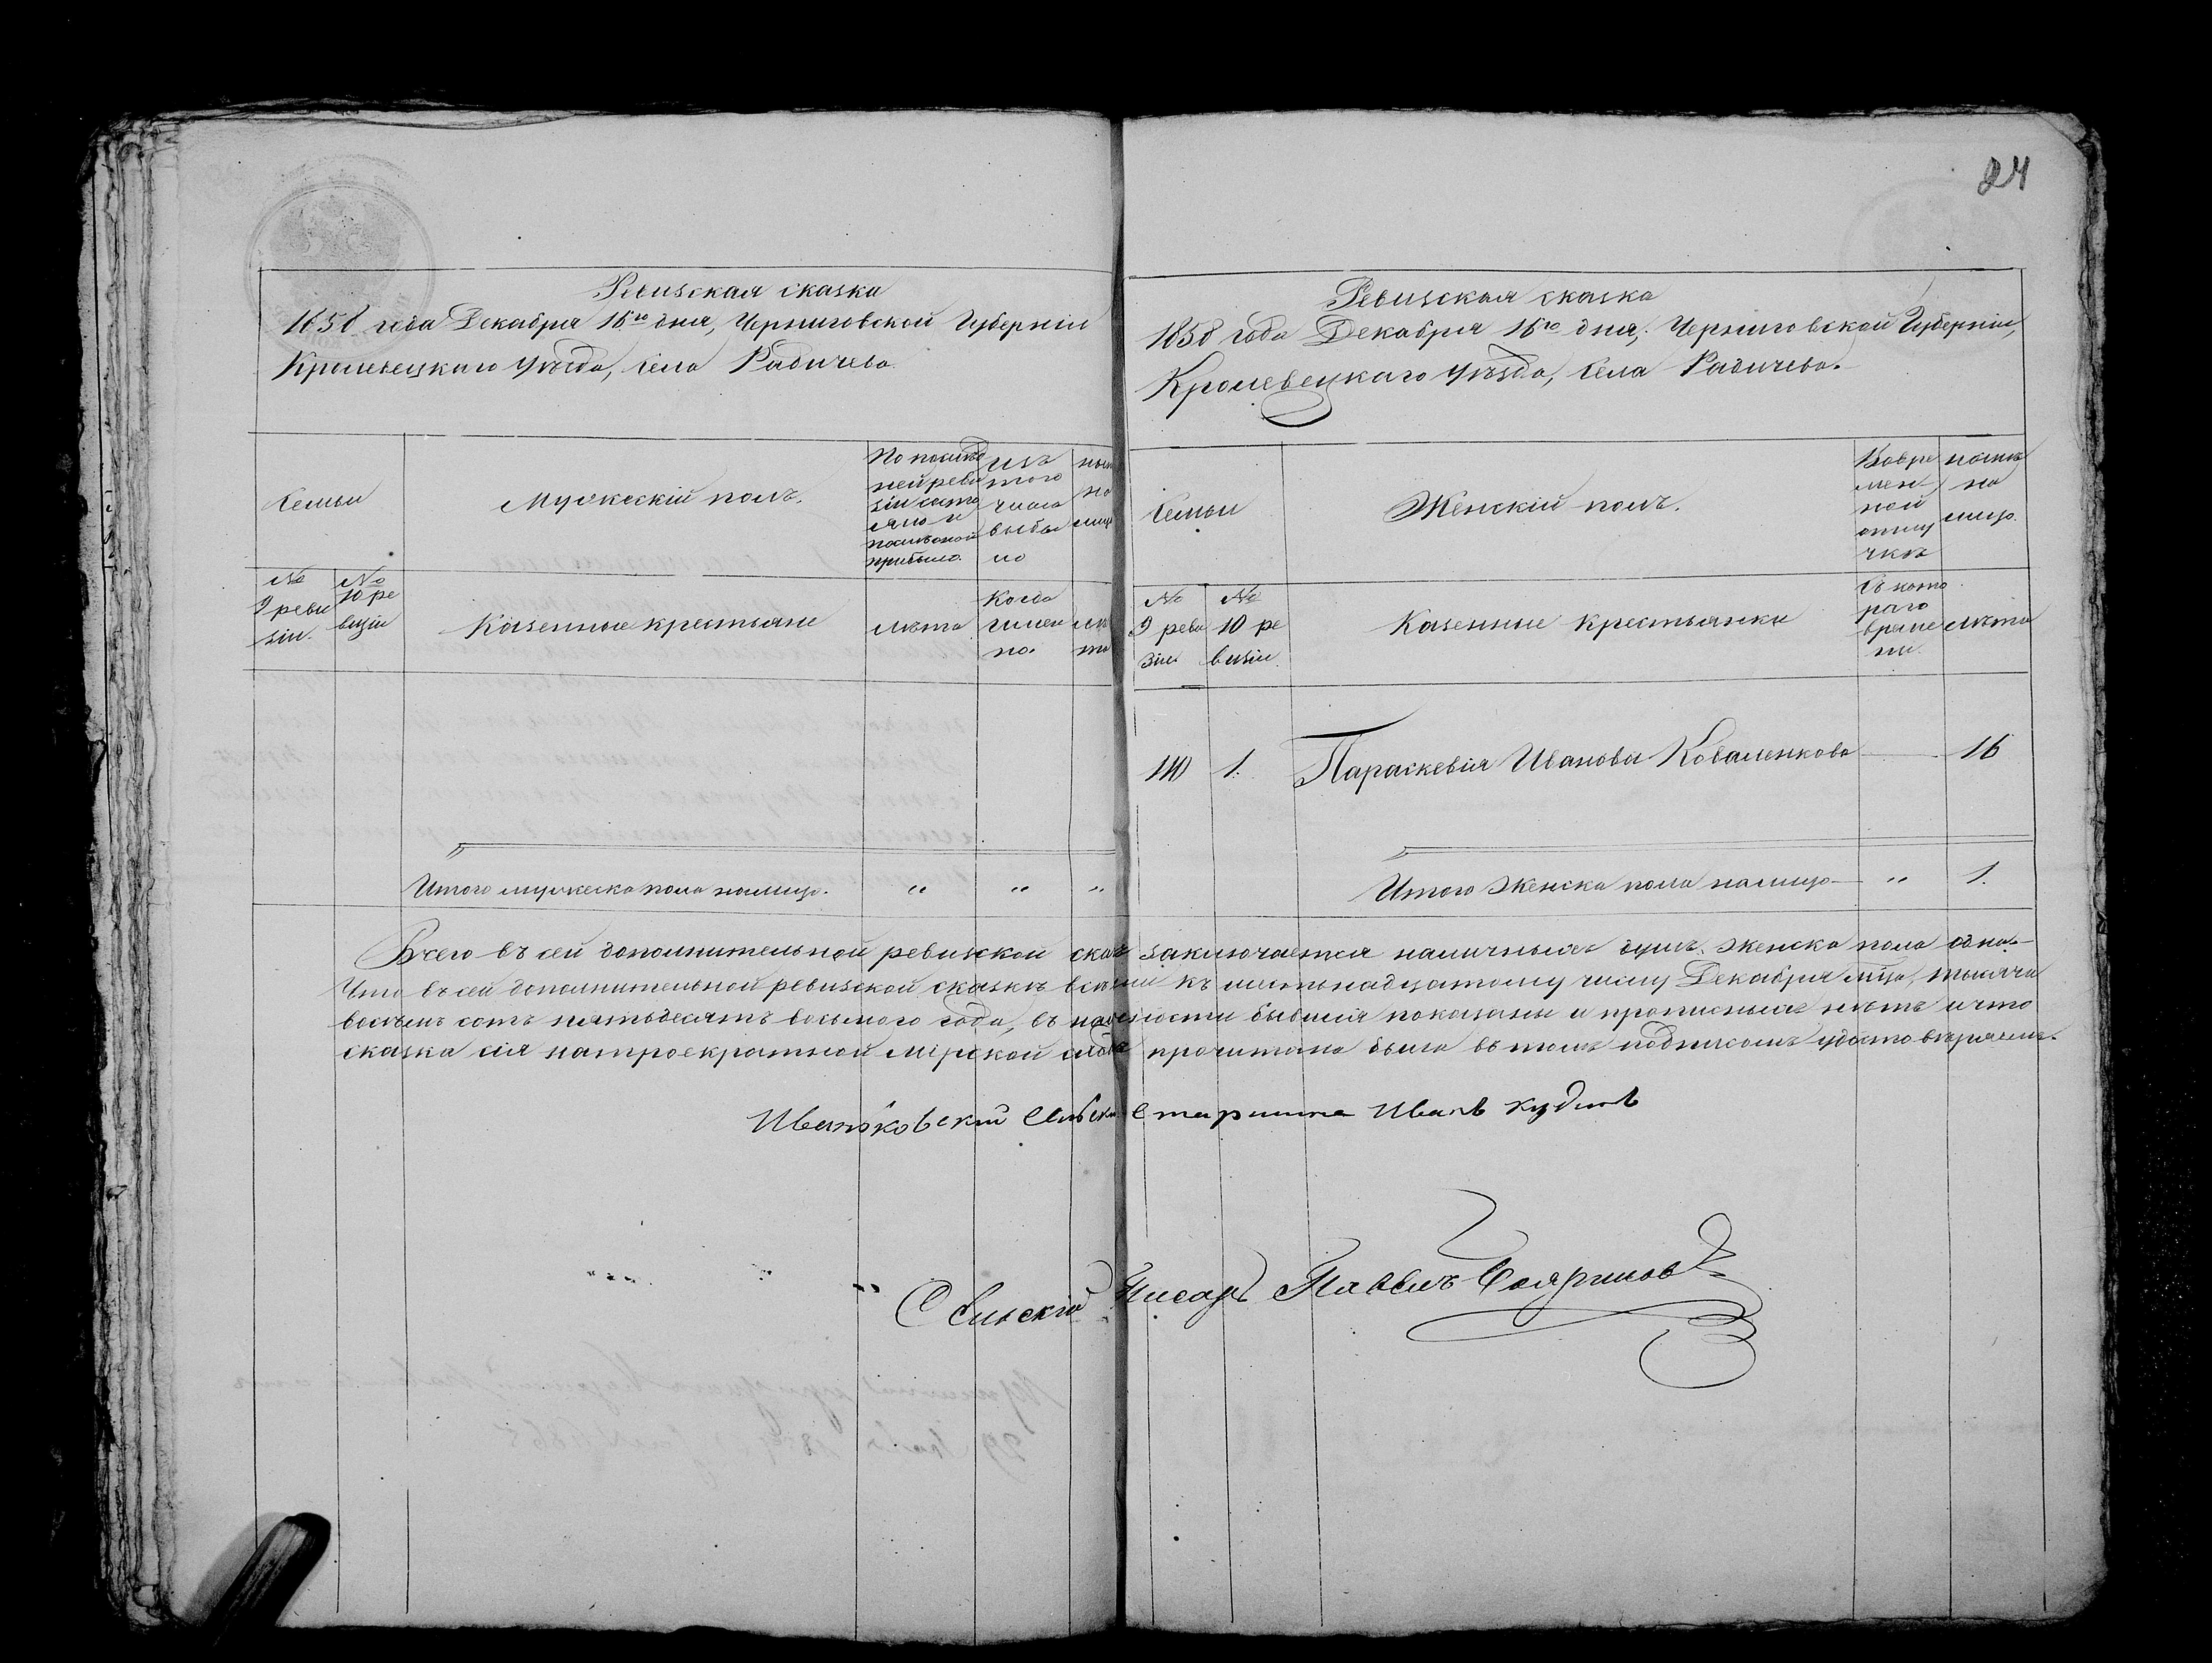 24
Ревизская сказка
1858 года Декабря 16го дня, Черниговской Губерніи
Кролевецкаго Уѣзда, села Радичева
Семьи
Мужескій полъ.
По послѣд
ней реви
зіи состо
яло и
послѣ оной
прибыло.
изъ
того
числа
выбы
ло
№
9 реви
зіи.
№
10 ре
визіи
Казенные крестьяне
лѣта
Когда
имен
но.
Итого мужеска пола налицо. " " "
Ревизская сказка
1858 года Декабря 16го дня, Черниговской Губерніи,
Кролевецкаго Уѣзда, села Радичева.
Семьи
Женскій полъ.
Вовре
мен
ной
отлу
чкѣ
налицо.
№
9 реви
зіи
№
10 ре
визіи.
Казенные крестьянки
Съ кото
раго
време
ни.
лѣта
1. Параскевія Иванова Коваленкова 16
Итого Женска пола налицо " 1.
Всего въ сей дополнительной ревизской сказ заключается наличныхъ душъ женска пола одна
Что въ сей дополнительной ревизской сказкѣ всѣ къ надцатому числу Декабря мца, тысяча
восемь сотъ пятьдесятъ восьмого года, въ наличности бывшія показаны и прописныхъ нѣтъ и что
сказка сія на троекратной мірской сходкѣ прочитана была въ томъ подписомъ удостовѣряемъ.
Иваньковскій Сельск Старшина Иванъ
Сельскій Писарь Павелъ